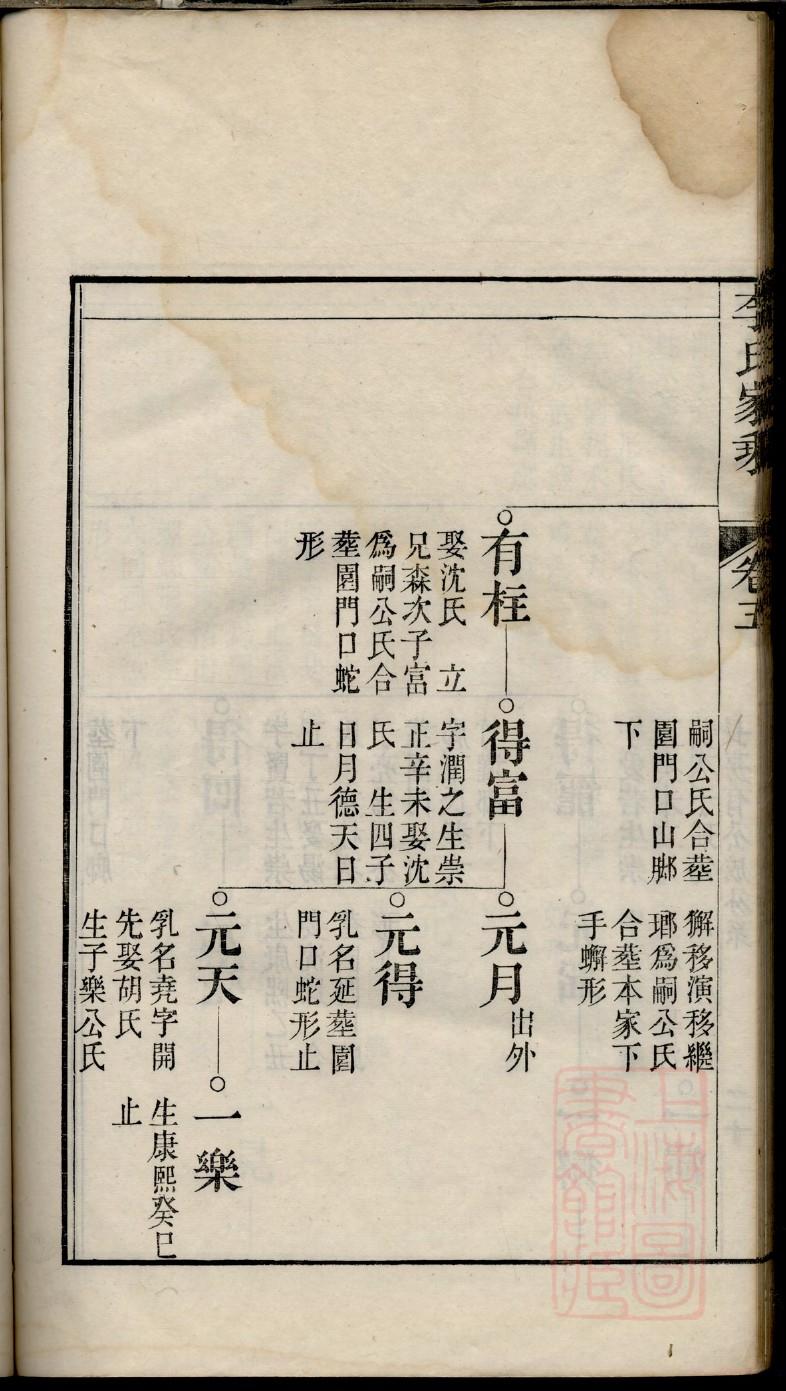 李氏家乘
卷五
嗣公氏合塟
園門口山腳
下
獬移演移繼
瑯爲嗣公氏
合塟本家下
手蠏形
有柱
娶沈氏　立
兄森次子富
爲嗣公氏合
塟園門口蛇
形
得富
字潤之生崇
正辛未娶沈
氏　生四子
日月德天日
止
元月
出外
元得
乳名延塟園
門口蛇形止
元天
乳名堯字開
先娶胡氏
生子樂公氏
一樂
生康熙癸巳
止
上海圖
書館藏